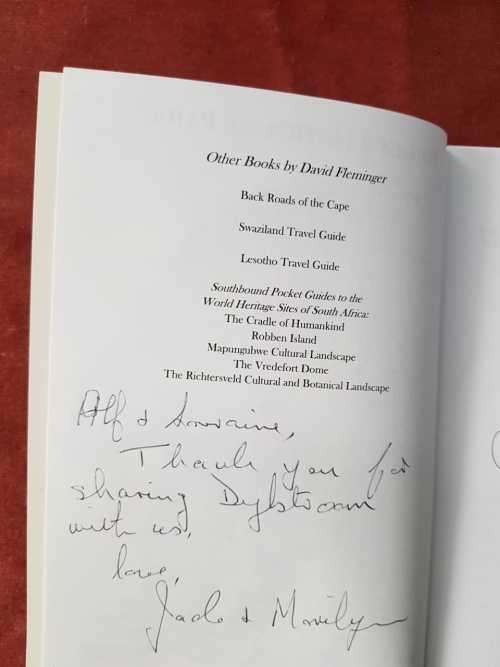 Other Books by David Fleminger
Back Roads of the Cape
Swaziland Travel Guide
Lesotho Travel Guide
Southbound Pocket Guides to the
World Heritage Sites of South Africa:
The Cradle of Humankind
Robben Island
Mapungubwe Cultural Landscape
The Vredefort Dome
The Richtersveld Cultural and Botanical Landscape
Alf & Lorraine,
Thank you for
sharing Dullstroom
with us,
love,
& Marilyn